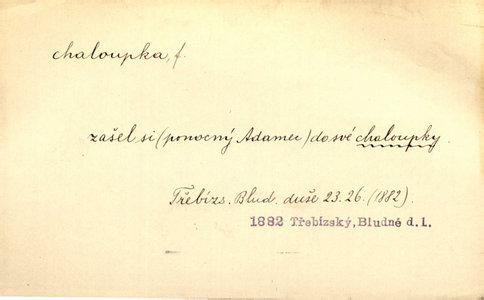 chaloupka, f.
zašel si (ponocný Adamec) do své chaloupky.
Třebízs. Blud. duše 23.26. (1882).
1882 Třebízský, Bludné d. 1.